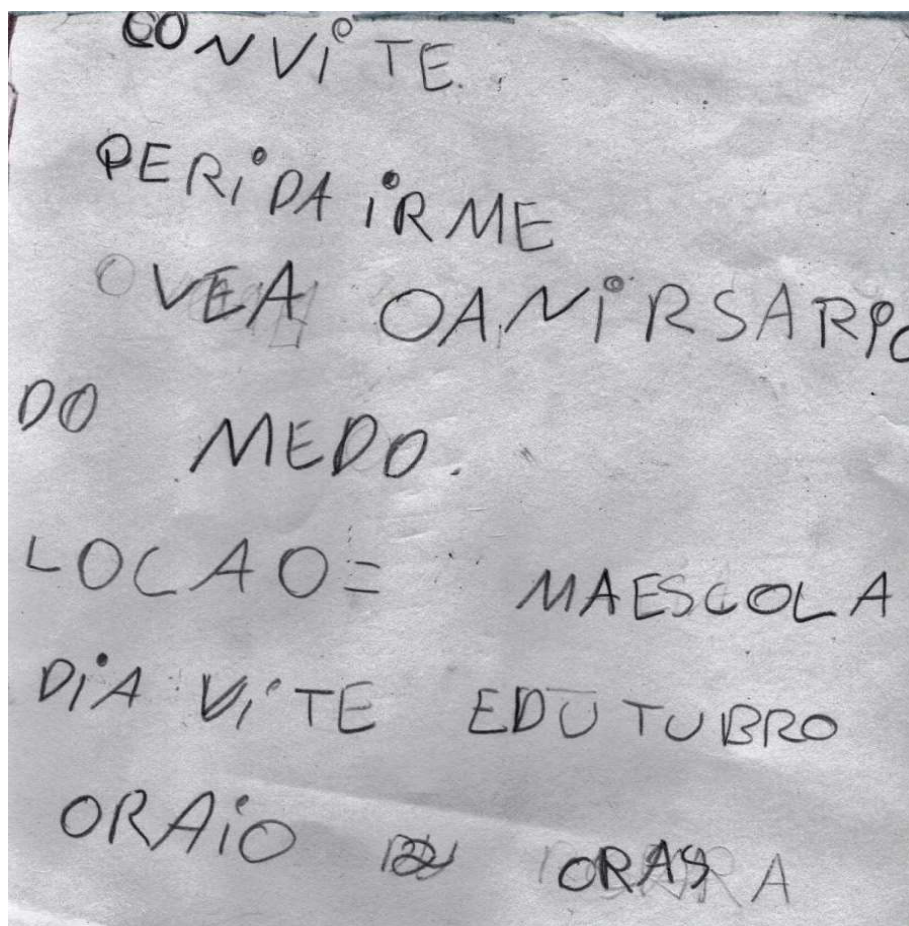 CONVITE.
PERIDA IRME
OVEA OANIRSARIO
DO MEDO.
LOCAO= MAESCOLA
DIA VITE EDUTUBRO
ORAIO ORAS